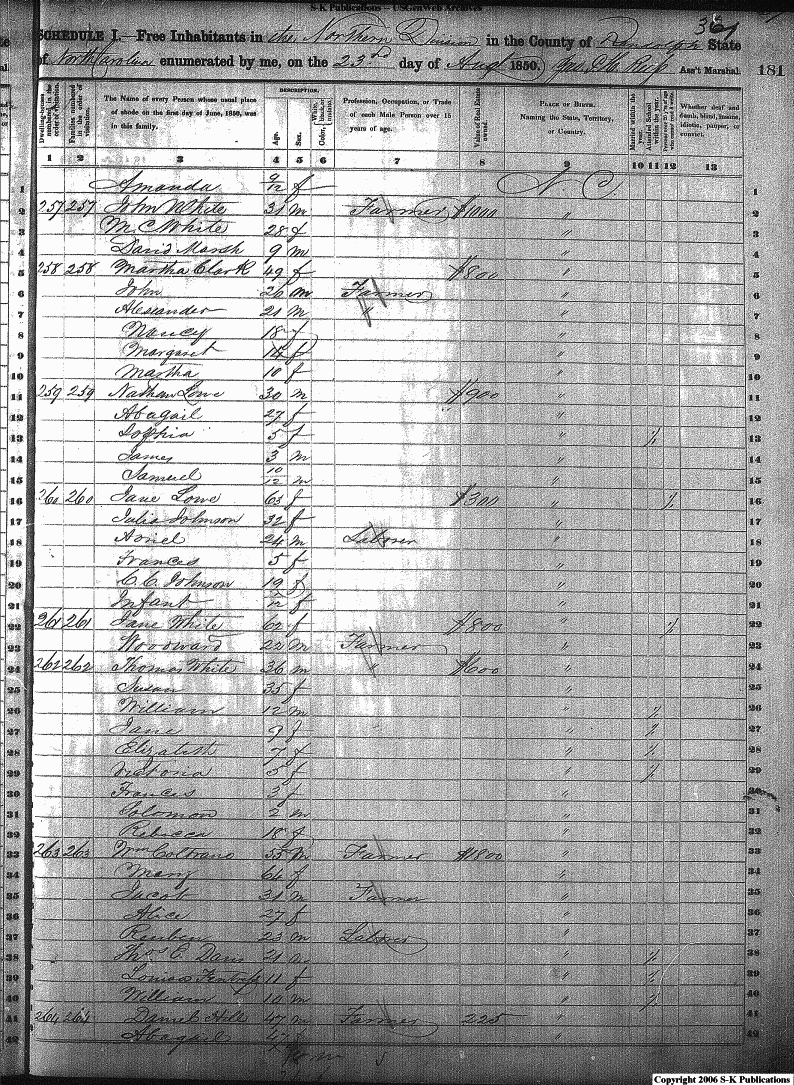 S-K Publications -- USGenWeb Archives
SCHEDULE I.—Free Inhabitants in the Northern Division in the County of Randolph State
of North Carolina enumerated by me, on the 23rd day of Aug 1850. Ass't Marshal.
181
DESCRIPTION.
Dwelling-houses numbered in the order of visitation.
Families numbered in the order of visitation.
The Name of every Person whose usual place of abode on the first day of June, 1850, was in this family.
Age.
Sex.
Profession, Occupation, or Trade of each Male Person over 15 years of age.
Value of Real Estate owned.
PLACE OF BIRTH. Naming the State, Territory, or Country.
Married within the year.
Attended School within the year.
Whether deaf and dumb, blind, insane, idiotic, pauper, or convict.
1 2 3 4 5 6 7 8 9 10 11 12 13
1 Amanda 9/12 f N C 1
2 257 257 John White 31 m Farmer $1000 " 2
3 M. C. White 28 f " 3
4 David Marsh 9 m " 4
5 258 258 Martha Clark 49 f $800 " 5
6 John 26 m Farmer " 6
7 Alexander 21 m " " 7
8 Nancy 18 f " 8
9 Margaret 14 f " 9
10 Martha 10 f " 10
11 259 259 Nathan Lowe 30 m $900 " 11
12 Abagail 27 f " 12
13 Sophia 5 f " / 13
14 James 3 m " 14
15 Samuel 10/12 m " 15
16 260 260 Jane Lowe 63 f $300 " / 16
17 Julia Johnson 32 f " 17
18 24 m Laborer " 18
19 Frances 5 f " 19
20 C. C. Johnson 19 f " 20
21 Infant /12 f " 21
22 261 261 Jane White 62 f $800 " / 22
23 Woodward 22 m Farmer " 23
24 262 262 Thomas White 36 m " $600 " 24
25 Susan 35 f " 25
26 William 12 m " / 26
27 Jane 9 f " / 27
28 Elizabeth 7 f " / 28
29 Victoria 5 f " / 29
30 Frances 3 f " 30
31 Solomon 2 m " 31
32 Rebecca 18 f " 32
33 263 263 Wm Coltrane 55 m Farmer $1800 " 33
34 Mary 64 f " 34
35 Jacob 31 m Farmer " 35
36 Alice 27 f " 36
37 Reuben 23 m Laborer " 37
38 Thos C. Davis 21 m " / 38
39 Louisa 11 f " / 39
40 William 10 m " / 40
41 264 264 Daniel Hill 47 m Farmer 225 " 41
42 Abagail 47 f " 42
Copyright 2006 S-K Publications